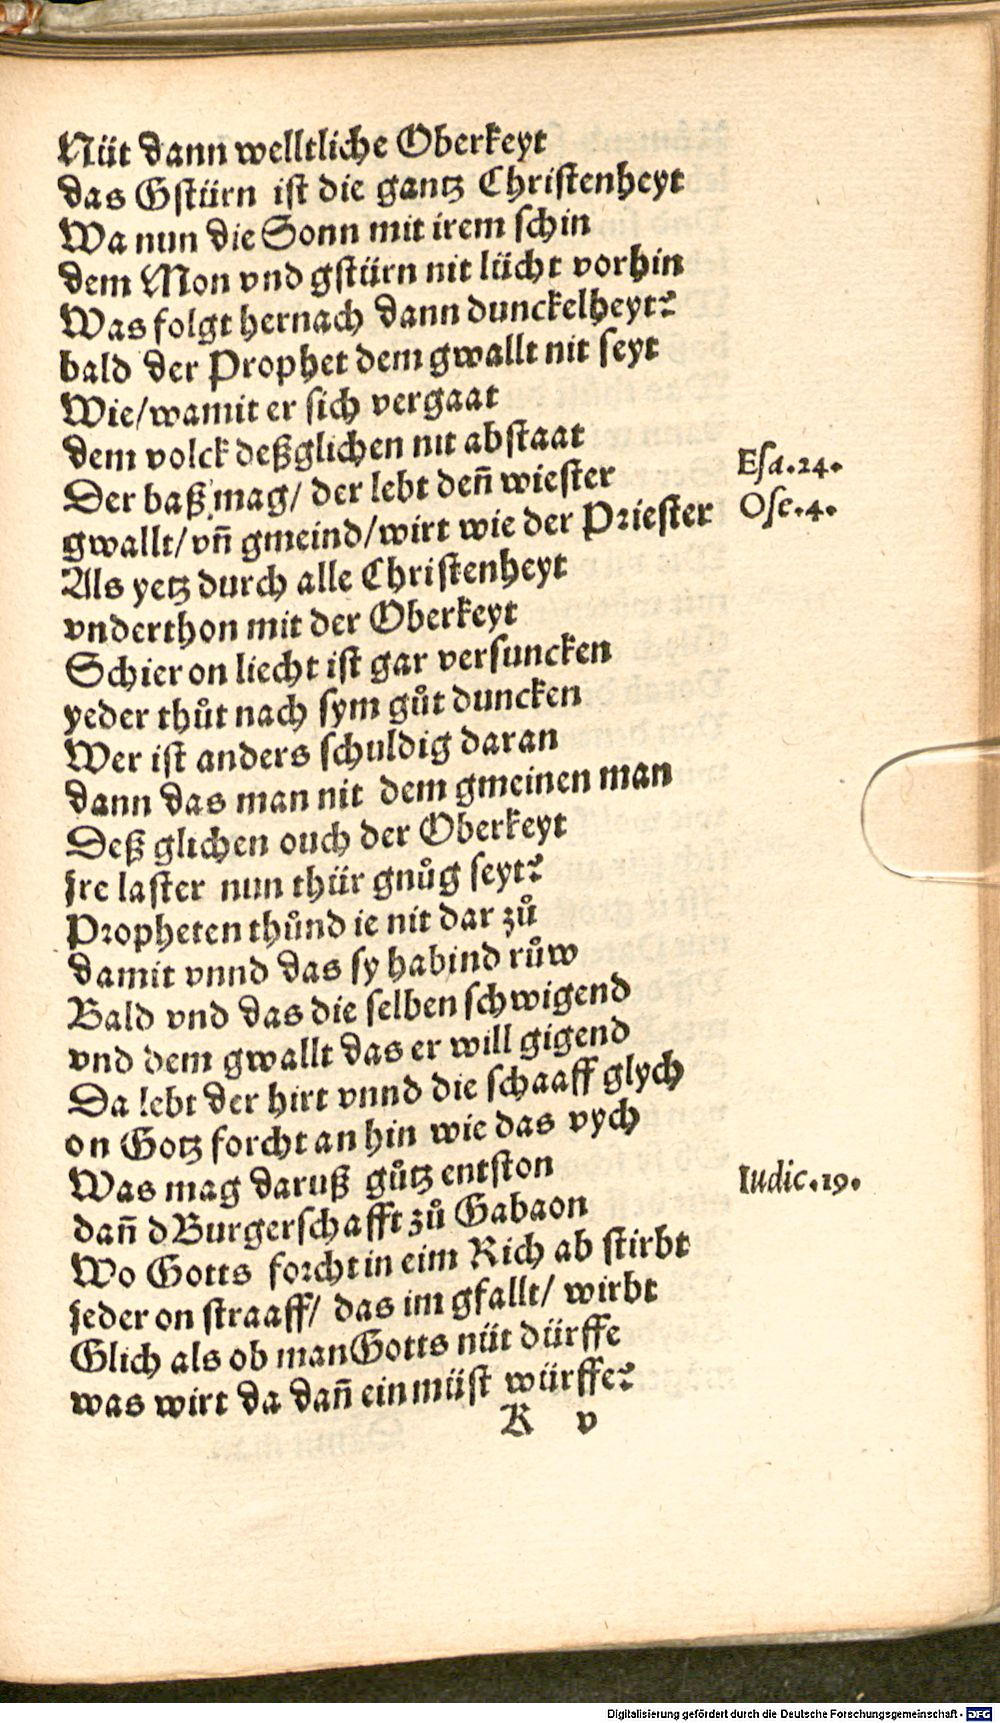 Nüt dann welltliche Oberkeyt
das Gstürn ist die gantz Christenheyt
Wa nun die Sonn mit irem schin
dem Mon vnd gstürn nit lücht vorhin
Was folgt hernach dann dunckelheyt?
bald der Prophet dem gwallt nit seyt
Wie/wamit er sich vergaat
dem volck deßglichen nit abstaat
Der baß mag/ der lebt deñ wiester
Esa.24.
gwallt/vñ gmeind/wirt wie der Priester
Ose.4.
Als yetz durch alle Christenheyt
vnderthon mit der Oberkeyt
Schier on liecht ist gar versuncken
yeder thůt nach sym gůt duncken
Wer ist anders schuldig daran
dann das man nit dem gmeinen man
Deß glichen ouch der Oberkeyt
jre laster nun thür gnůg seyt?
Propheten thůnd ie nit dar zů
damit vnnd das sy habind růw
Bald vnd das die selben schwigend
vnd dem gwallt das er will gigend
Da lebt der hirt vnnd die schaaff glych
on Gotz forcht an hin wie das vych
Was mag daruß gůtz entston
Iudic.19.
dañ dBurgerschafft zů Gabaon
Wo Gotts forcht in eim Rich ab stirbt
jeder on straaff/ das im gfallt/ wirbt
Glich als ob man Gotts nüt dürffe
was wirt da dañ ein müst würffe?
K v
Digitalisierung gefördert durch die Deutsche Forschungsgemeinschaft - DFG